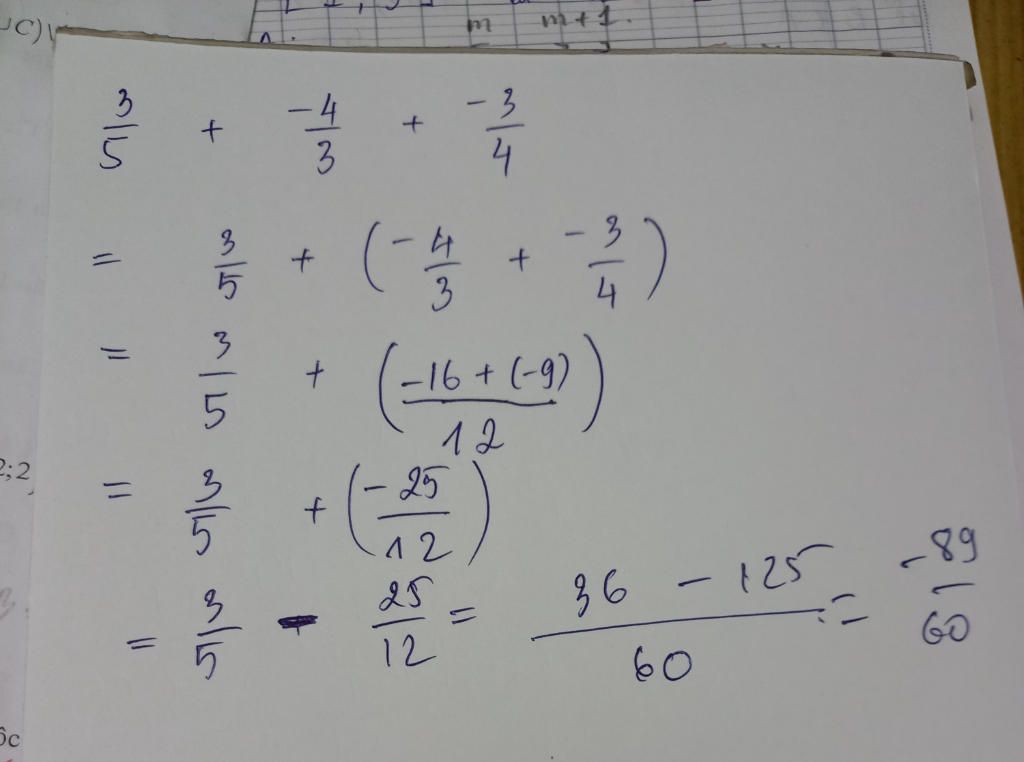 m m+1.
3/5 + -4/3 + -3/4
= 3/5 + (-4/3 + -3/4)
= 3/5 + (-16 + (-9)/12)
= 3/5 + (-25/12)
= 3/5 - 25/12 = 36 - 125/60 = -89/60